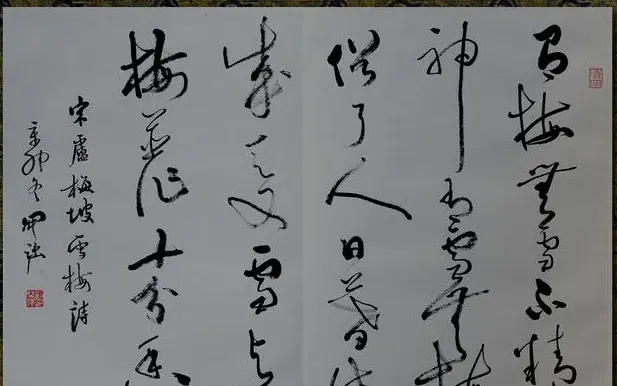 有梅無雪不精
神有雪無
俗了人日暮詩
成天又雪与
梅並作十分春
宋盧梅坡雪梅詩
辛卯冬